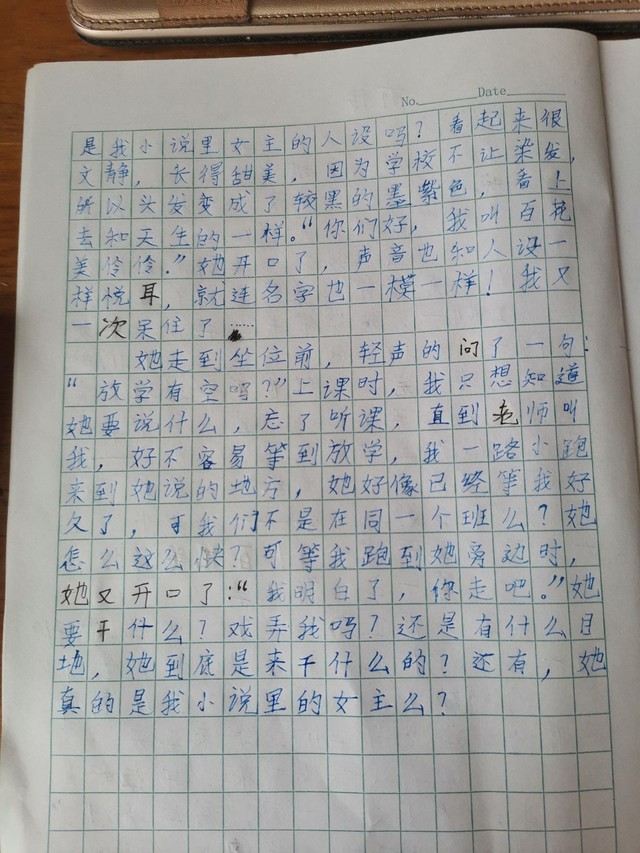 No. Date
是我小说里女主的人设吗？看起来很
文静，长得甜美，因为学校不让染发，
所以头发变成了较黑的墨紫色，看上
去和天生的一样。“你们好，我叫百花
美伶伶。”她开口了，声音也和人设一
样悦耳，就连名字也一模一样！我又
一次呆住了……
她走到坐位前，轻声的问了一句：
“放学有空吗？”上课时，我只想知道
她要说什么，忘了听课，直到老师叫
我，好不容易等到放学，我一路小跑
来到她说的地方，她好像已经等我好
久了，可我们不是在同一个班么？她
怎么这么快？可等我跑到她旁边时，
她又开口了：“我明白了，你走吧。”她
要干什么？戏弄我吗？还是有什么目
地，她到底是来干什么的？还有，她
真的是我小说里的女主么？